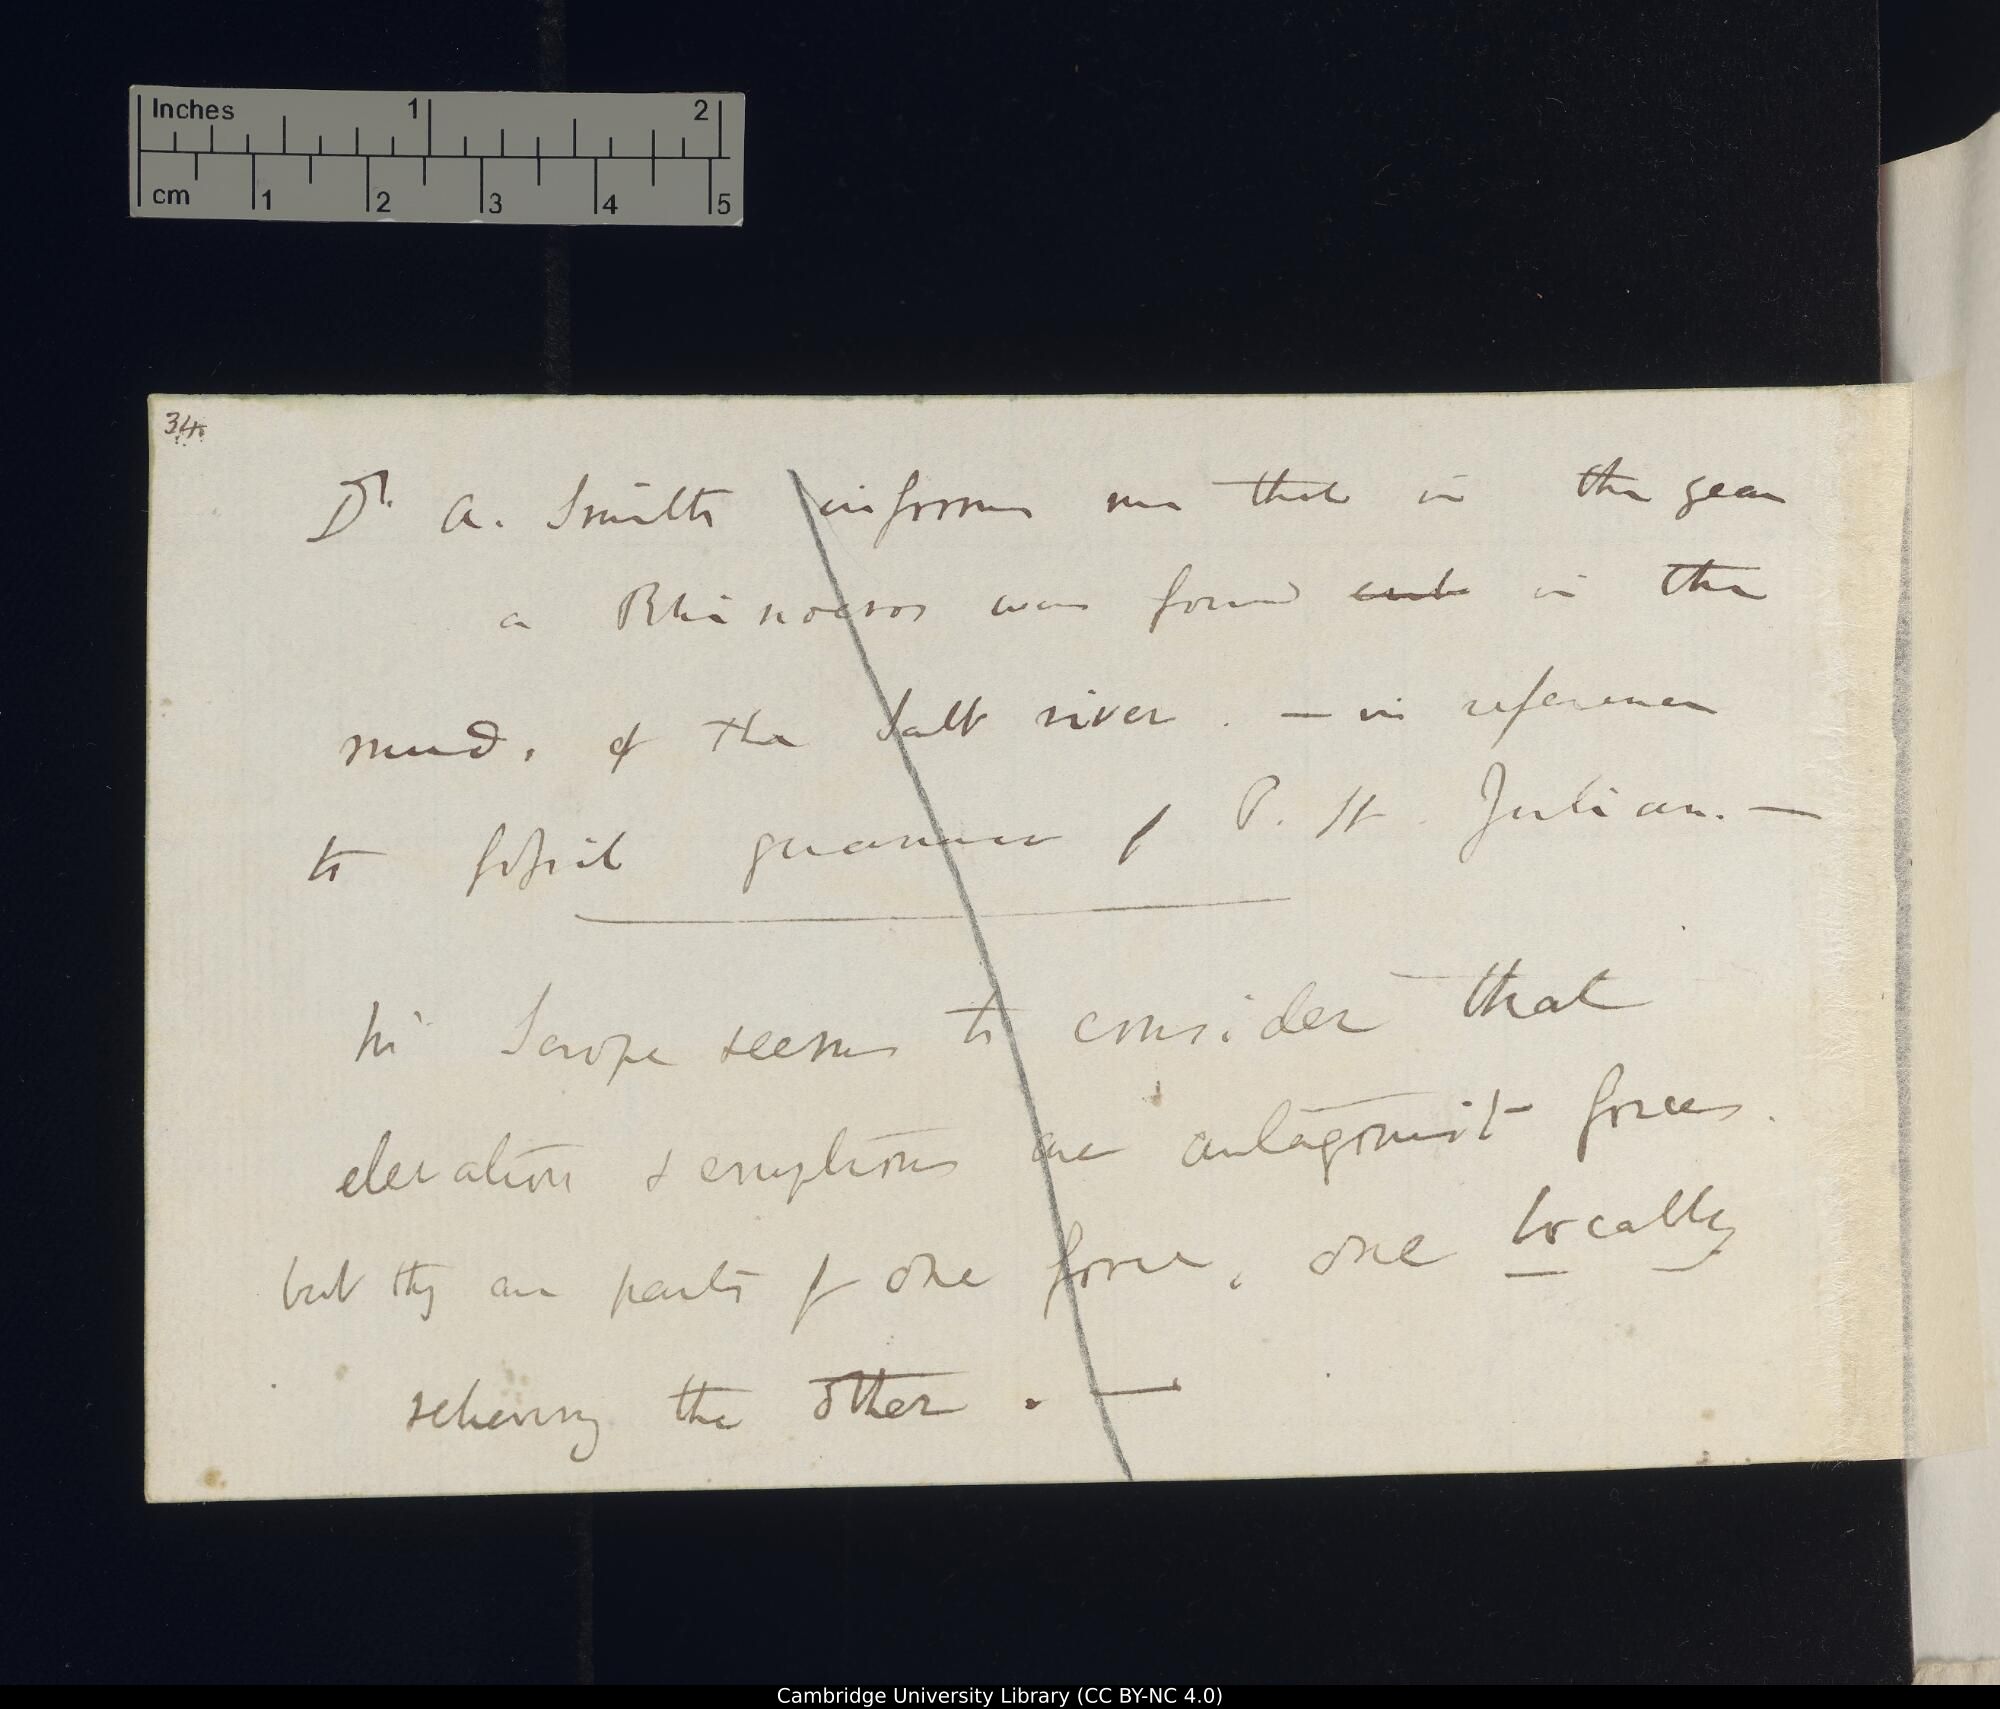 Inches 1 2
cm 1 2 3 4 5
34
Dr. A. Smith informs me that in the year
a Rhinoceros was found in the
mud, of the Salt river. — in reference
to fossil guanaco of P. St. Julian. —
Scrope seems to consider that
elevation & eruptions are antagonist forces.
but they are parts of one force, one locally
relieving the other. —
Cambridge University Library (CC BY-NC 4.0)